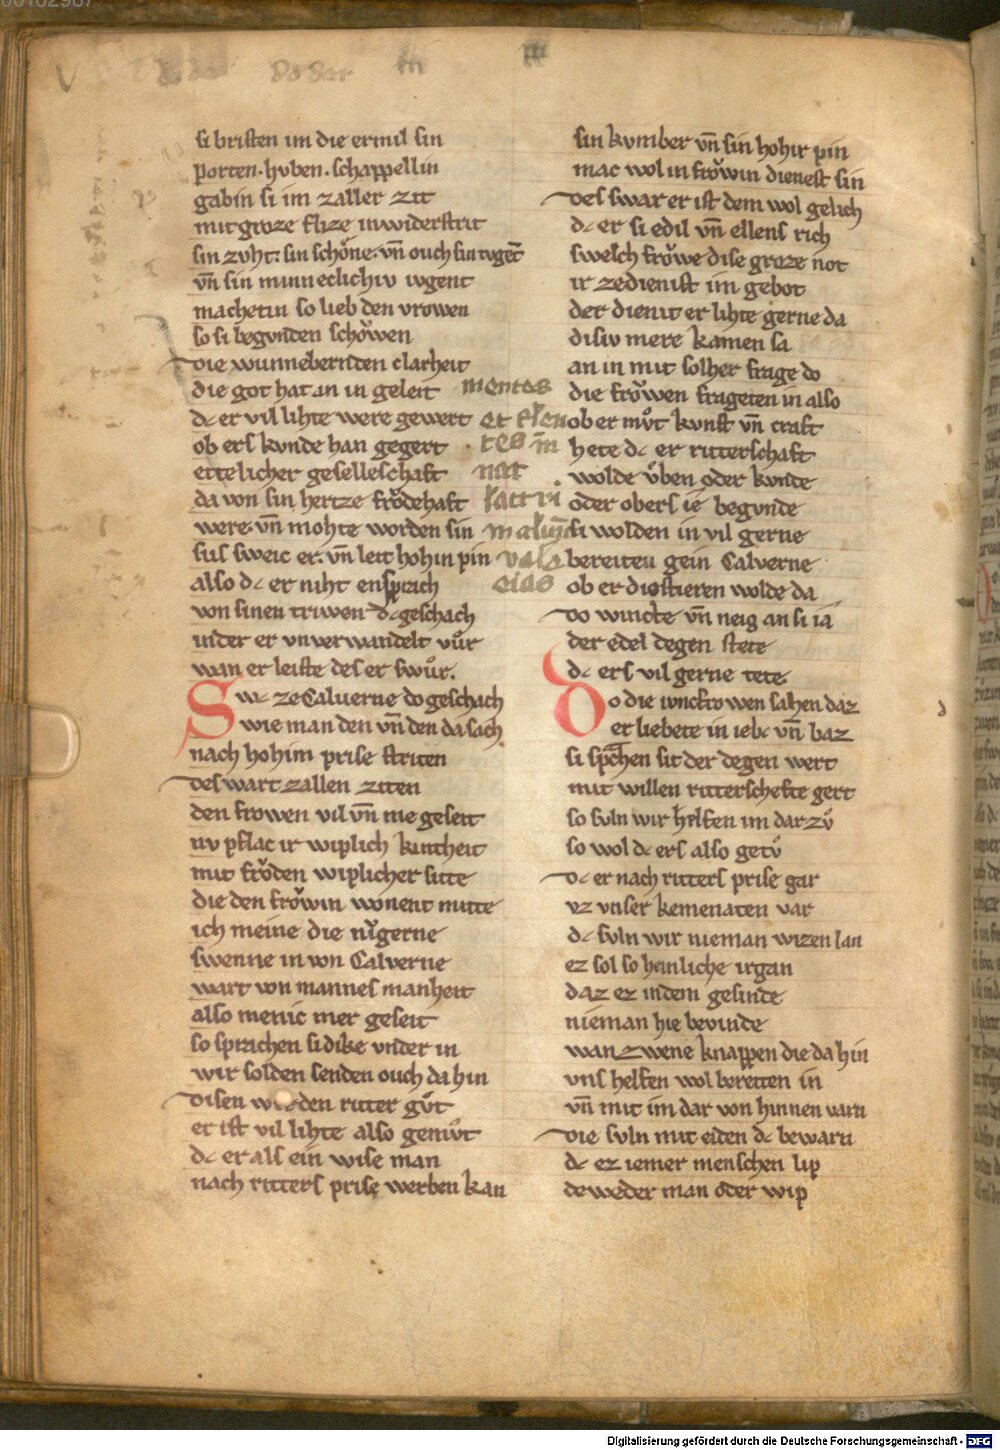 si bristen im die ermil sin
porten · hvben · schappellin
gabin si im zaller zit
mit groze flize inwiderstrit
sin zvht: sin schoͤne· vn̄ ouch sin tvgēt
vn̄ sin minneclichiv ivgent
machetin so lieb den vrowen
so si begvnden schoͮwen
die wunnebernden clarheit
die got hat an in geleit
dc er vil lihte were gewert
ob ers kvnde han gegert
ettelicher geselleschaft
da von sin hertze froͮdehaft
were· vn̄ mohte worden sin
sus sweic er· vn̄ leit hohin pin
also dc er niht ensprach
von sinen triwen dc geschach
inder er vnverwandelt vuͦr
wan er leiste des er swuͦr.
Swc ze Caluerne do geschach
wie man den vn̄ den da sach
nach hohim prise striten
des wart zallen ziten
den frowen vil vn̄ me geseit
nv pflac ir wiplich kintheit
mit froͮden wiplicher sitte
die den froͮwin wonent mitte
ich meine die nuͥgerne
swenne in von Calverne
wart von mannes manheit
also menic mer geseit
so sprachen si dike vnder in
wir solden senden ouch da hin
disen werden ritter guͦt
er ist vil lihte also gemuͦt
dc er als ein wise man
nach ritters prise werben kan
mentes
et flen
tes in
nat
sacri
maluᷤ
vale
cias
sin kvmber vn̄ sin hohir pin
mac wol in froͮwin dienest sin
des swar er ist dem wol gelich
dc er si edil vn̄ ellens rich
swelch froͮwe dise groze not
ir zedienist im gebot
der dienit er lihte gerne da
disiv mere kamen sa
an in mit solher frage do
die froͮwen frageten in also
ob er muͦt kvnst vn̄ craft
hete dc er ritterschaft
wolde uͤben oder kvnde
oder obers ie begvnde
si wolden in vil gerne
bereiten gein Calverne
ob er diostieren wolde da
do wincte vn̄ neig an si ia
der edel degen stete
dc ers vil gerne tete·
Do die ivncfrowen sahen daz
er liebete in iebc vn̄ baz
si sprachen sit der degen wert
mit willen ritterschefte gert
so svln wir helfen im dar zuͦ
so wol dc ers also getuͦ
dc er nach ritters prise gar
vz vnser kemenaten var
dc svln wir nieman wizen lan
ez sol so heinliche irgan
daz ez indem gesinde
nieman hie bevinde
wan zwene knappen die da hin
vns helfen wol bereiten in
vn̄ mit im dar von hinnen varn
die svln mit eiden dc bewarn
dc ez iemer menschen lip
deweder man oder wip
Digitalisierung gefördert durch die Deutsche Forschungsgemeinschaft - DFG